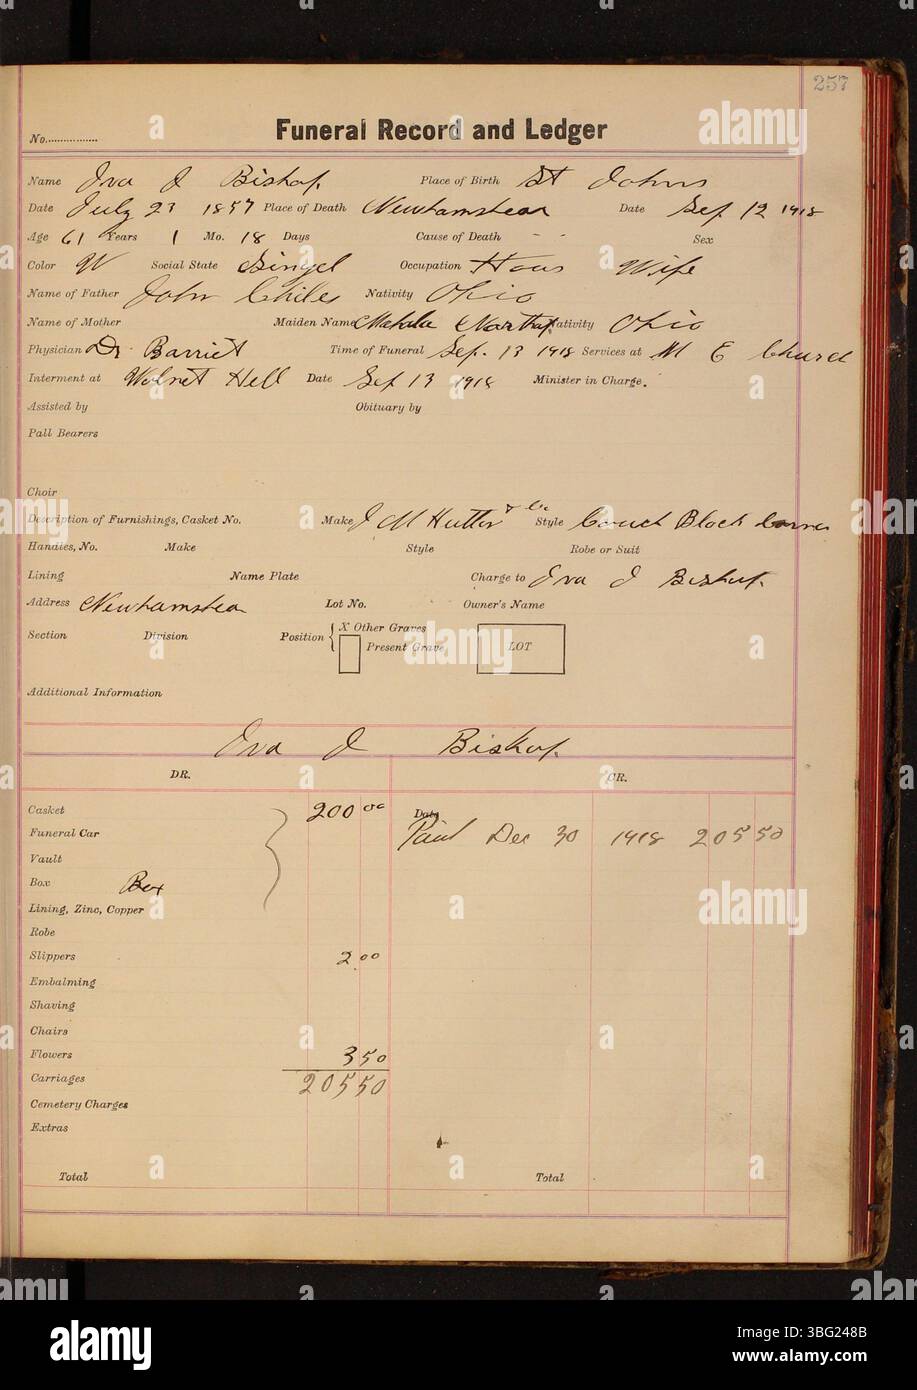 257
No.
Funeral Record and Ledger
Name Iva J Bishop. Place of Birth St Johns
Date July 23 1857 Place of Death Newhamstead Date Sep 12 1918
Age 61 Years 1 Mo. 18 Days Cause of Death - - Sex
Color W Social State Singel Occupation Hous Wife
Name of Father John Chiles Nativity Ohio
Name of Mother Maiden Name Mahala Nativity Ohio
Physician Dr. Barriet Time of Funeral Sep. 13 1918 Services at M E Church
Interment at Wolnet Hell Date Sep 13 1918 Minister in Charge.
Assisted by Obituary by
Pall Bearers
Choir
Description of Furnishings, Casket No. Make J M Hutton & Co Style Couch Block Corner
Handles, No. Make Style Robe or Suit
Lining Name Plate Charge to Iva J Bishop.
Address Newhamstead Lot No. Owner's Name
Section Division Position { X Other Graves
Present Grave LOT
Additional Information
Iva J Bishop.
DR. CR.
Casket 200 00 Date
Funeral Car Paid Dec 30 1918 205 50
Vault
Box Box
Lining, Zinc, Copper
Robe
Slippers 2 00
Embalming
Shaving
Chairs
Flowers 3 50
Carriages 205 50
Cemetery Charges
Extras
Total Total
alamy
Image ID: 3BG248B
www.alamy.com